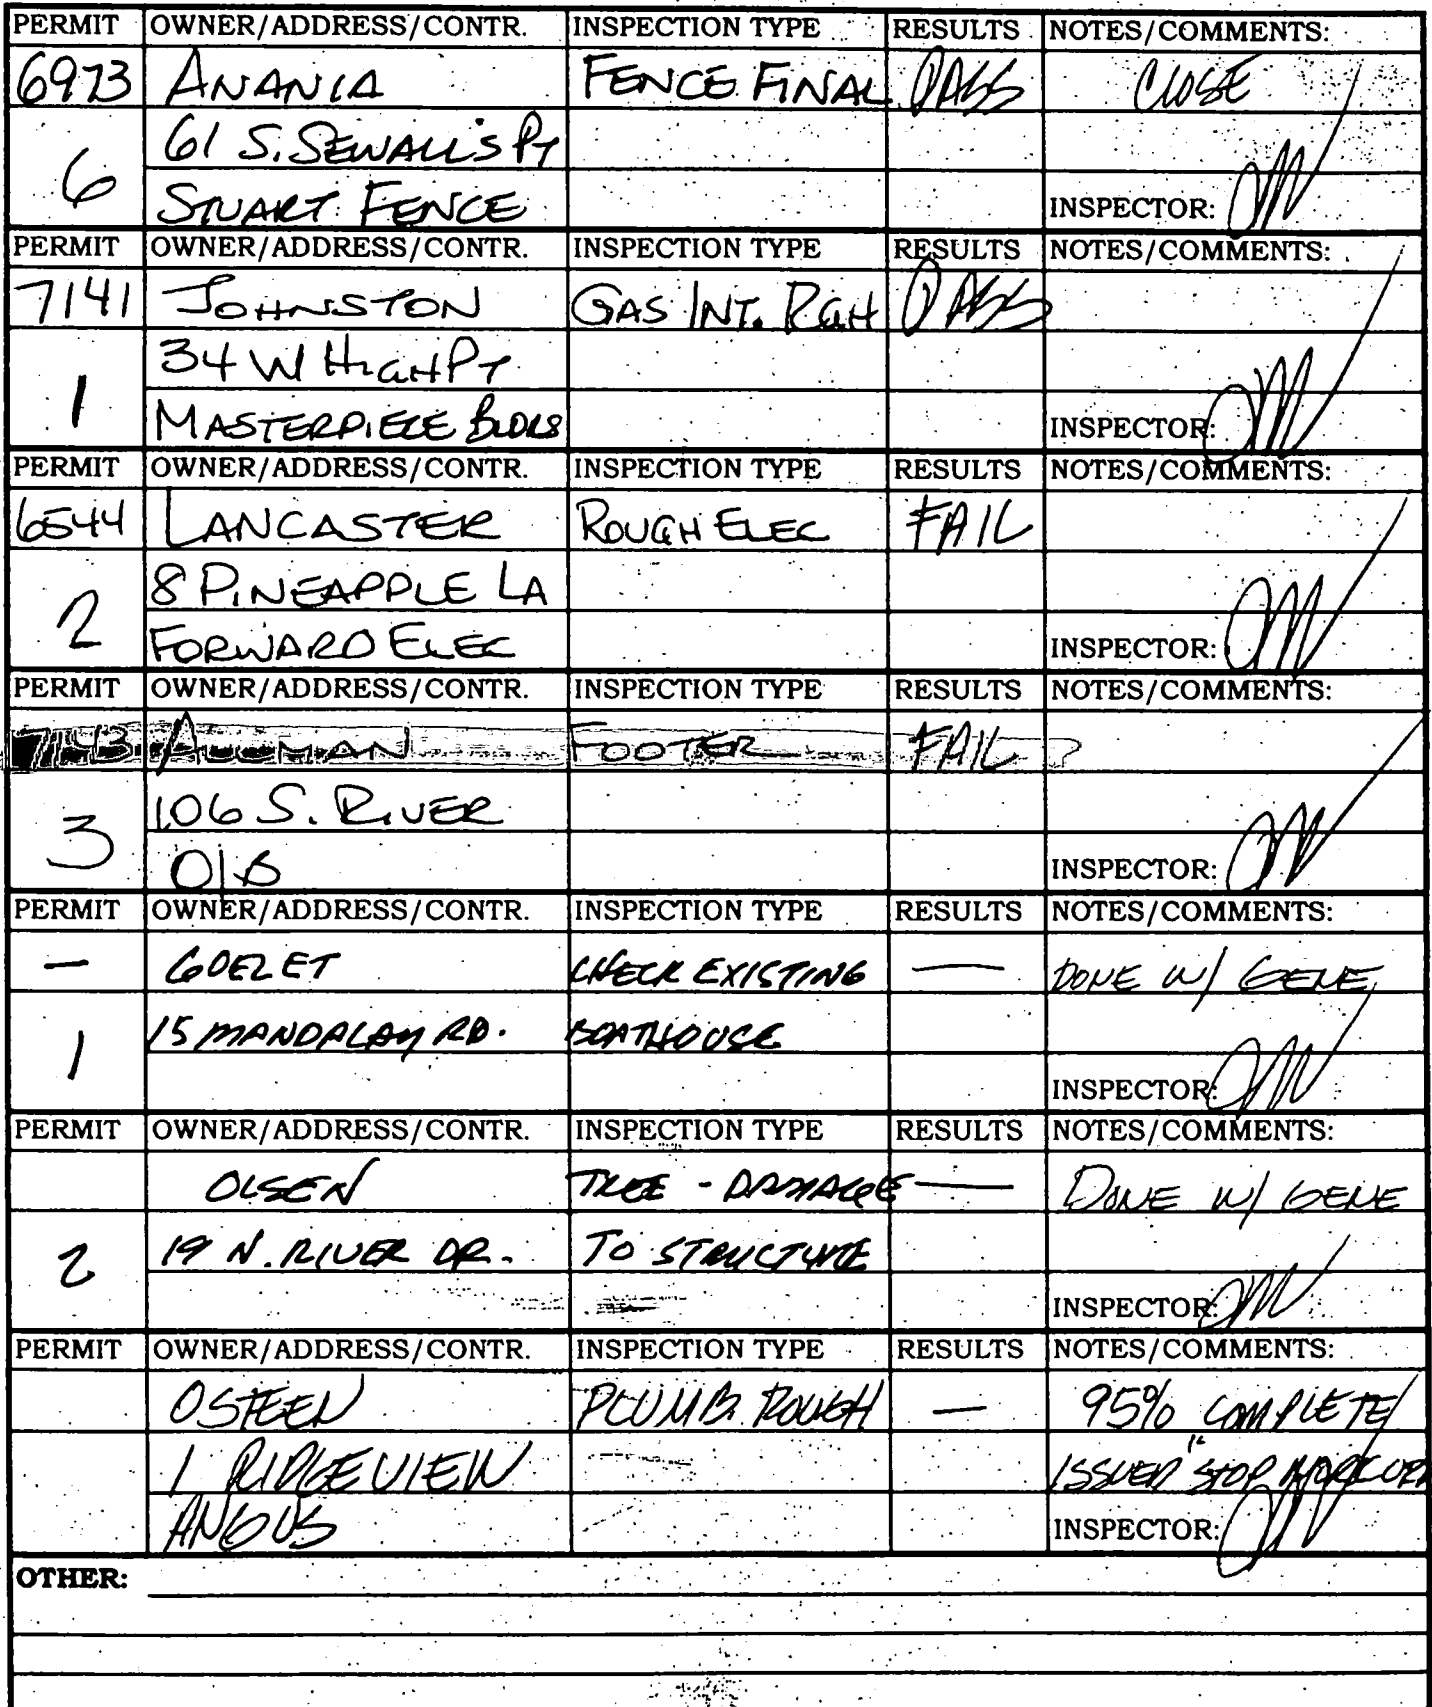 PERMIT OWNER/ADDRESS/CONTR. INSPECTION TYPE RESULTS NOTES/COMMENTS:
6973 ANANIA FENCE FINAL PASS CLOSE
6 61 S. SEWALL'S PT
STUART FENCE INSPECTOR:
PERMIT OWNER/ADDRESS/CONTR. INSPECTION TYPE RESULTS NOTES/COMMENTS:
7141 JOHNSTON GAS INT. RGH PASS
1 34 W HIGH PT
MASTERPIECE BLDRS INSPECTOR:
PERMIT OWNER/ADDRESS/CONTR. INSPECTION TYPE RESULTS NOTES/COMMENTS:
6544 LANCASTER ROUGH ELEC FAIL
2 8 PINEAPPLE LA
FORWARD ELEC INSPECTOR:
PERMIT OWNER/ADDRESS/CONTR. INSPECTION TYPE RESULTS NOTES/COMMENTS:
FOOTER FAIL
3 106 S. RIVER
O/B INSPECTOR:
PERMIT OWNER/ADDRESS/CONTR. INSPECTION TYPE RESULTS NOTES/COMMENTS:
— GOELET CHECK EXISTING — DONE W/ GENE
1 15 MANDALAY RD. BOATHOUSE
INSPECTOR:
PERMIT OWNER/ADDRESS/CONTR. INSPECTION TYPE RESULTS NOTES/COMMENTS:
OLSEN TREE - DAMAGE — DONE W/ GENE
2 19 N. RIVER DR. TO STRUCTURE
INSPECTOR:
PERMIT OWNER/ADDRESS/CONTR. INSPECTION TYPE RESULTS NOTES/COMMENTS:
OSTEEN PLUMB. ROUGH — 95% COMPLETE
1 RIDGEVIEW ISSUED "STOP WORK
ANGUS INSPECTOR:
OTHER: